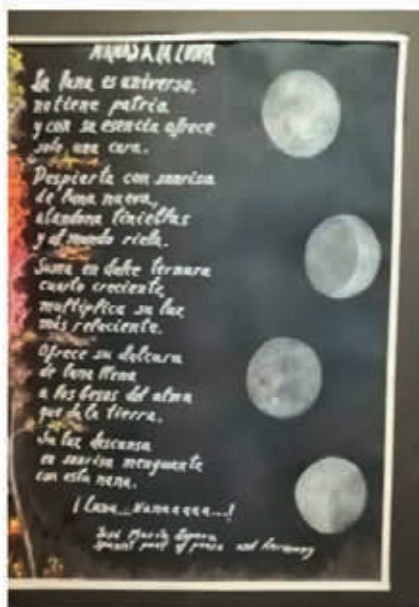 NANAS A LA LUNA
La luna es universo,
no tiene patria
y con su esencia ofrece
solo una cara.
Despierta con sonrisa
de luna nueva,
abandona tinieblas
y al mundo riela.
Suma en dulce ternura
cuarto creciente,
multiplica su luz
más reluciente.
Ofrece su dulzura
de luna llena
a los besos del alma
que da la tierra.
Su luz descansa
en sonrisa menguante
con esta nana.
¡Luna...Nanaaaaa...!
José María
Spanish poet of peace and harmony